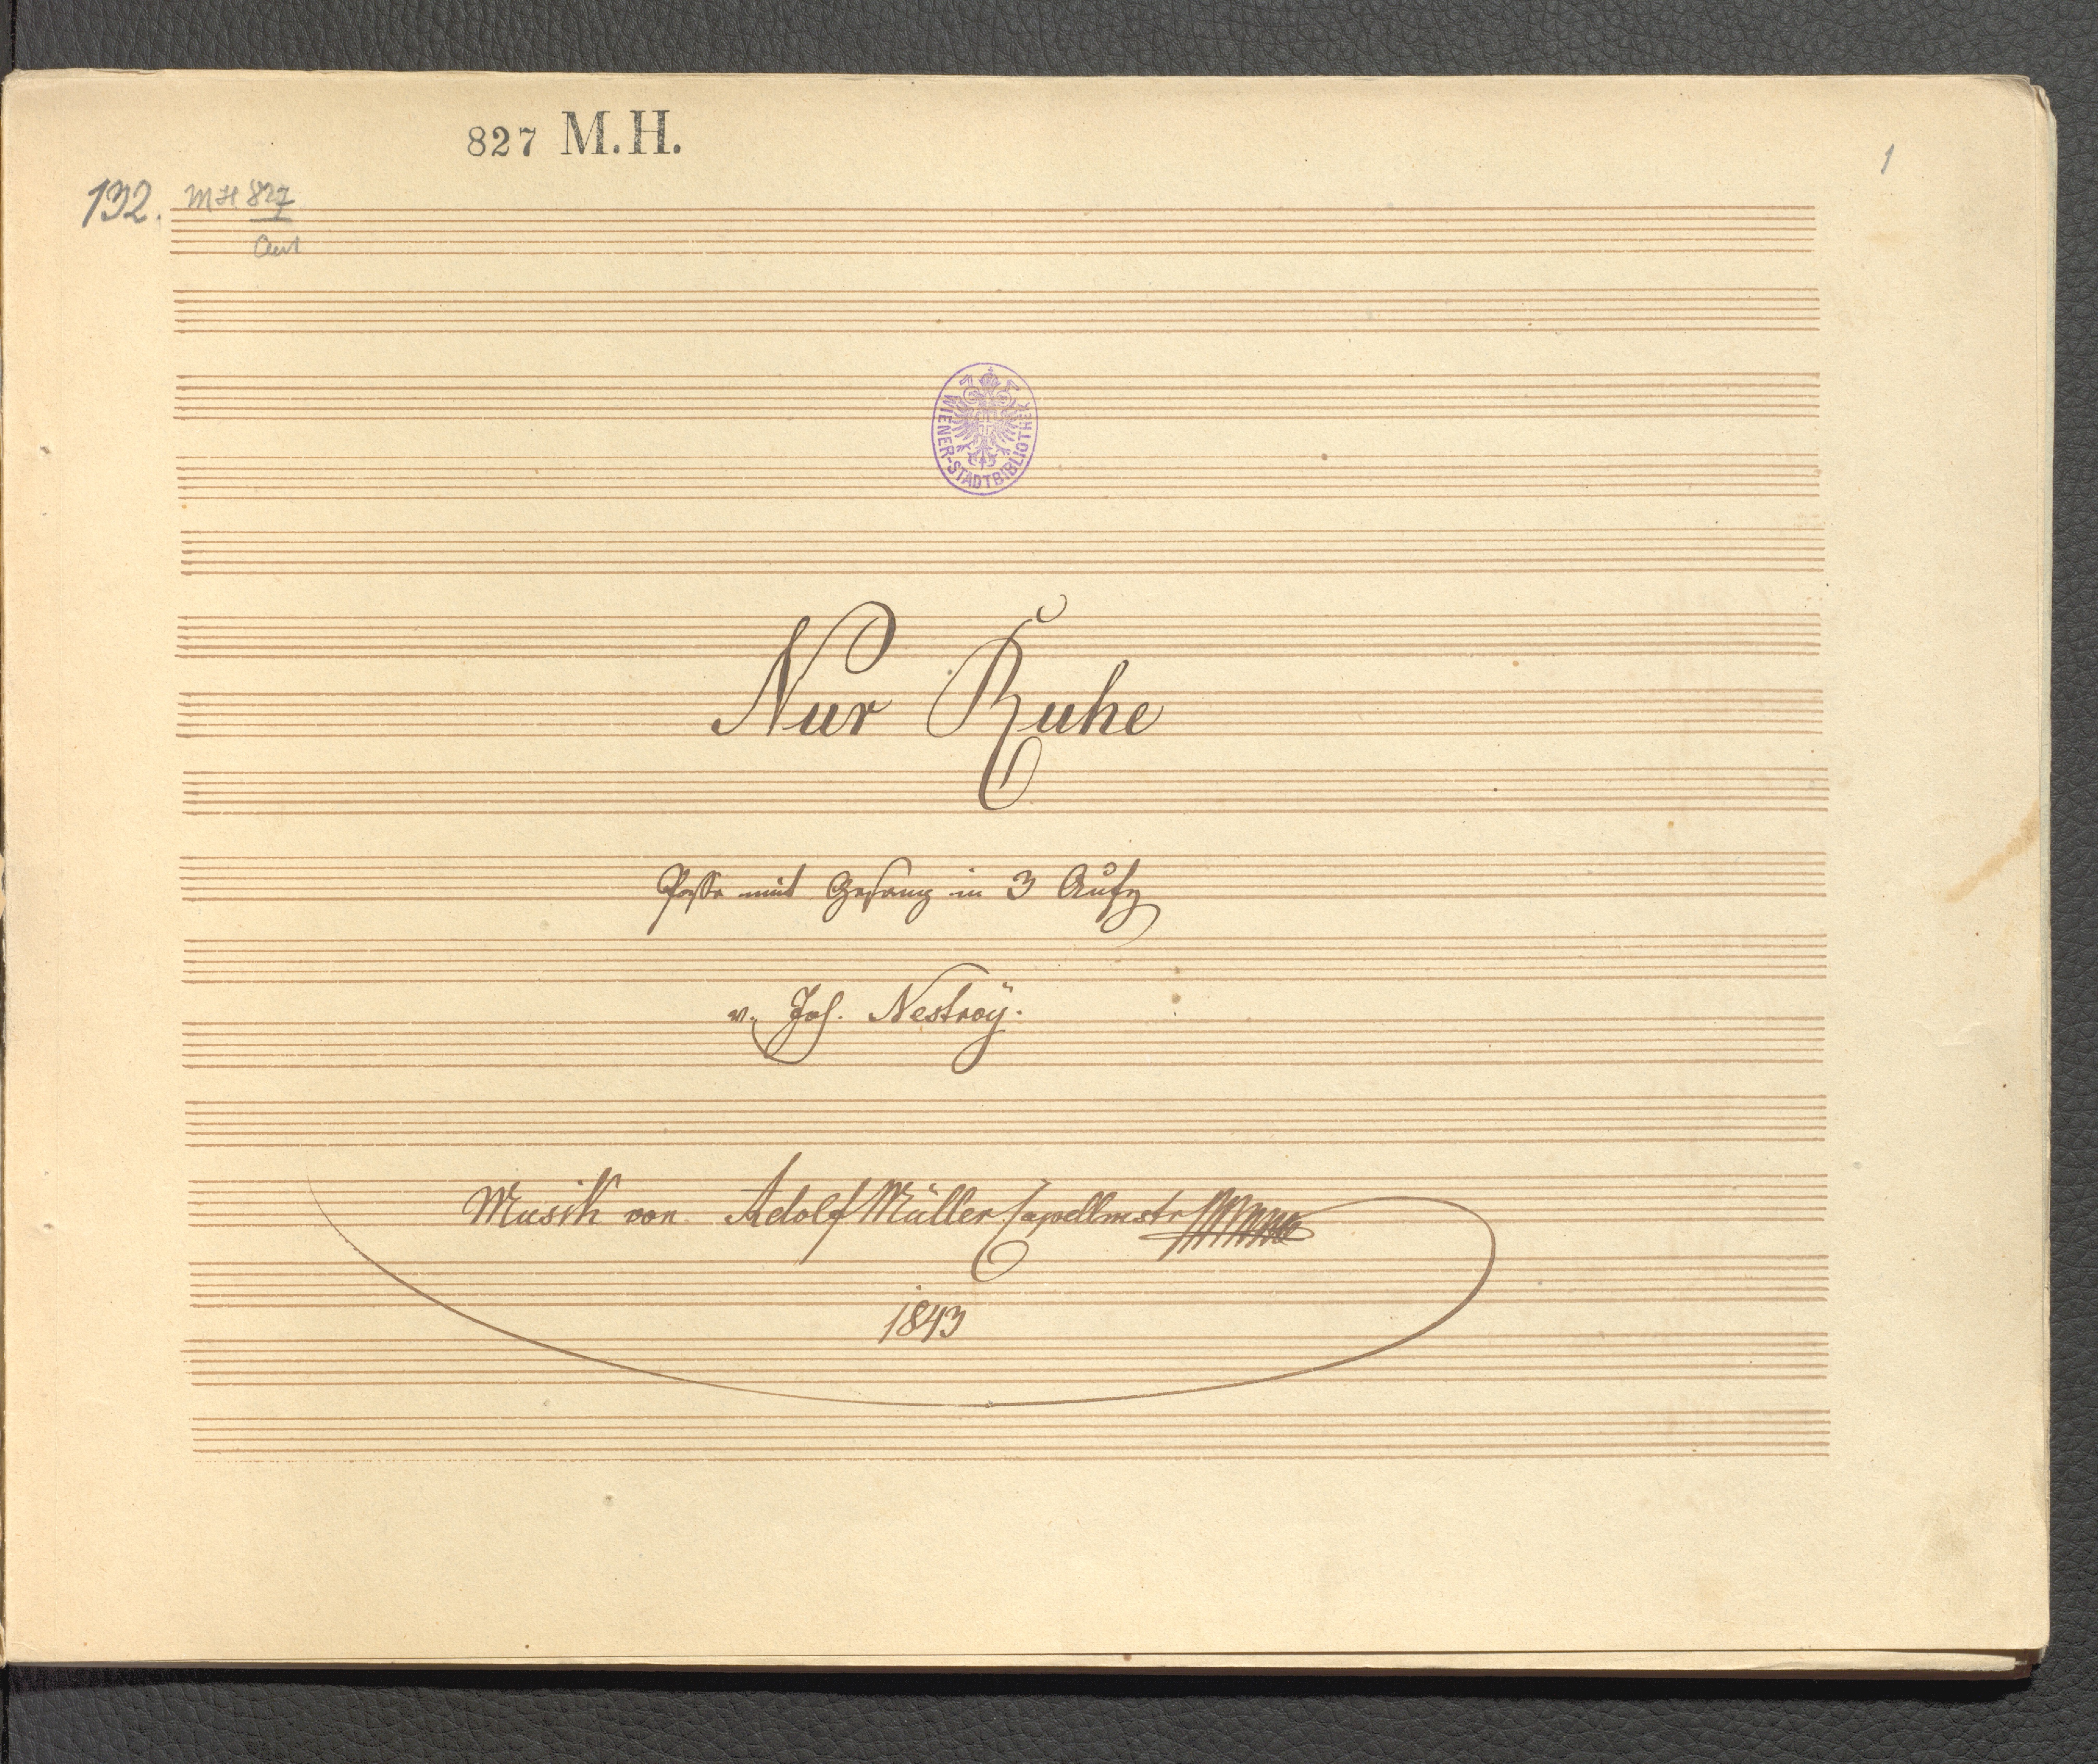 827 M.H.
1
132. MH 827
Aut
WIENER-STADTBIBLIOTHEK
Nur Ruhe
Posse mit Gesang in 3 Aufz
v. Joh. Nestroÿ.
Musik von Adolf Müller Capellmstr
1843